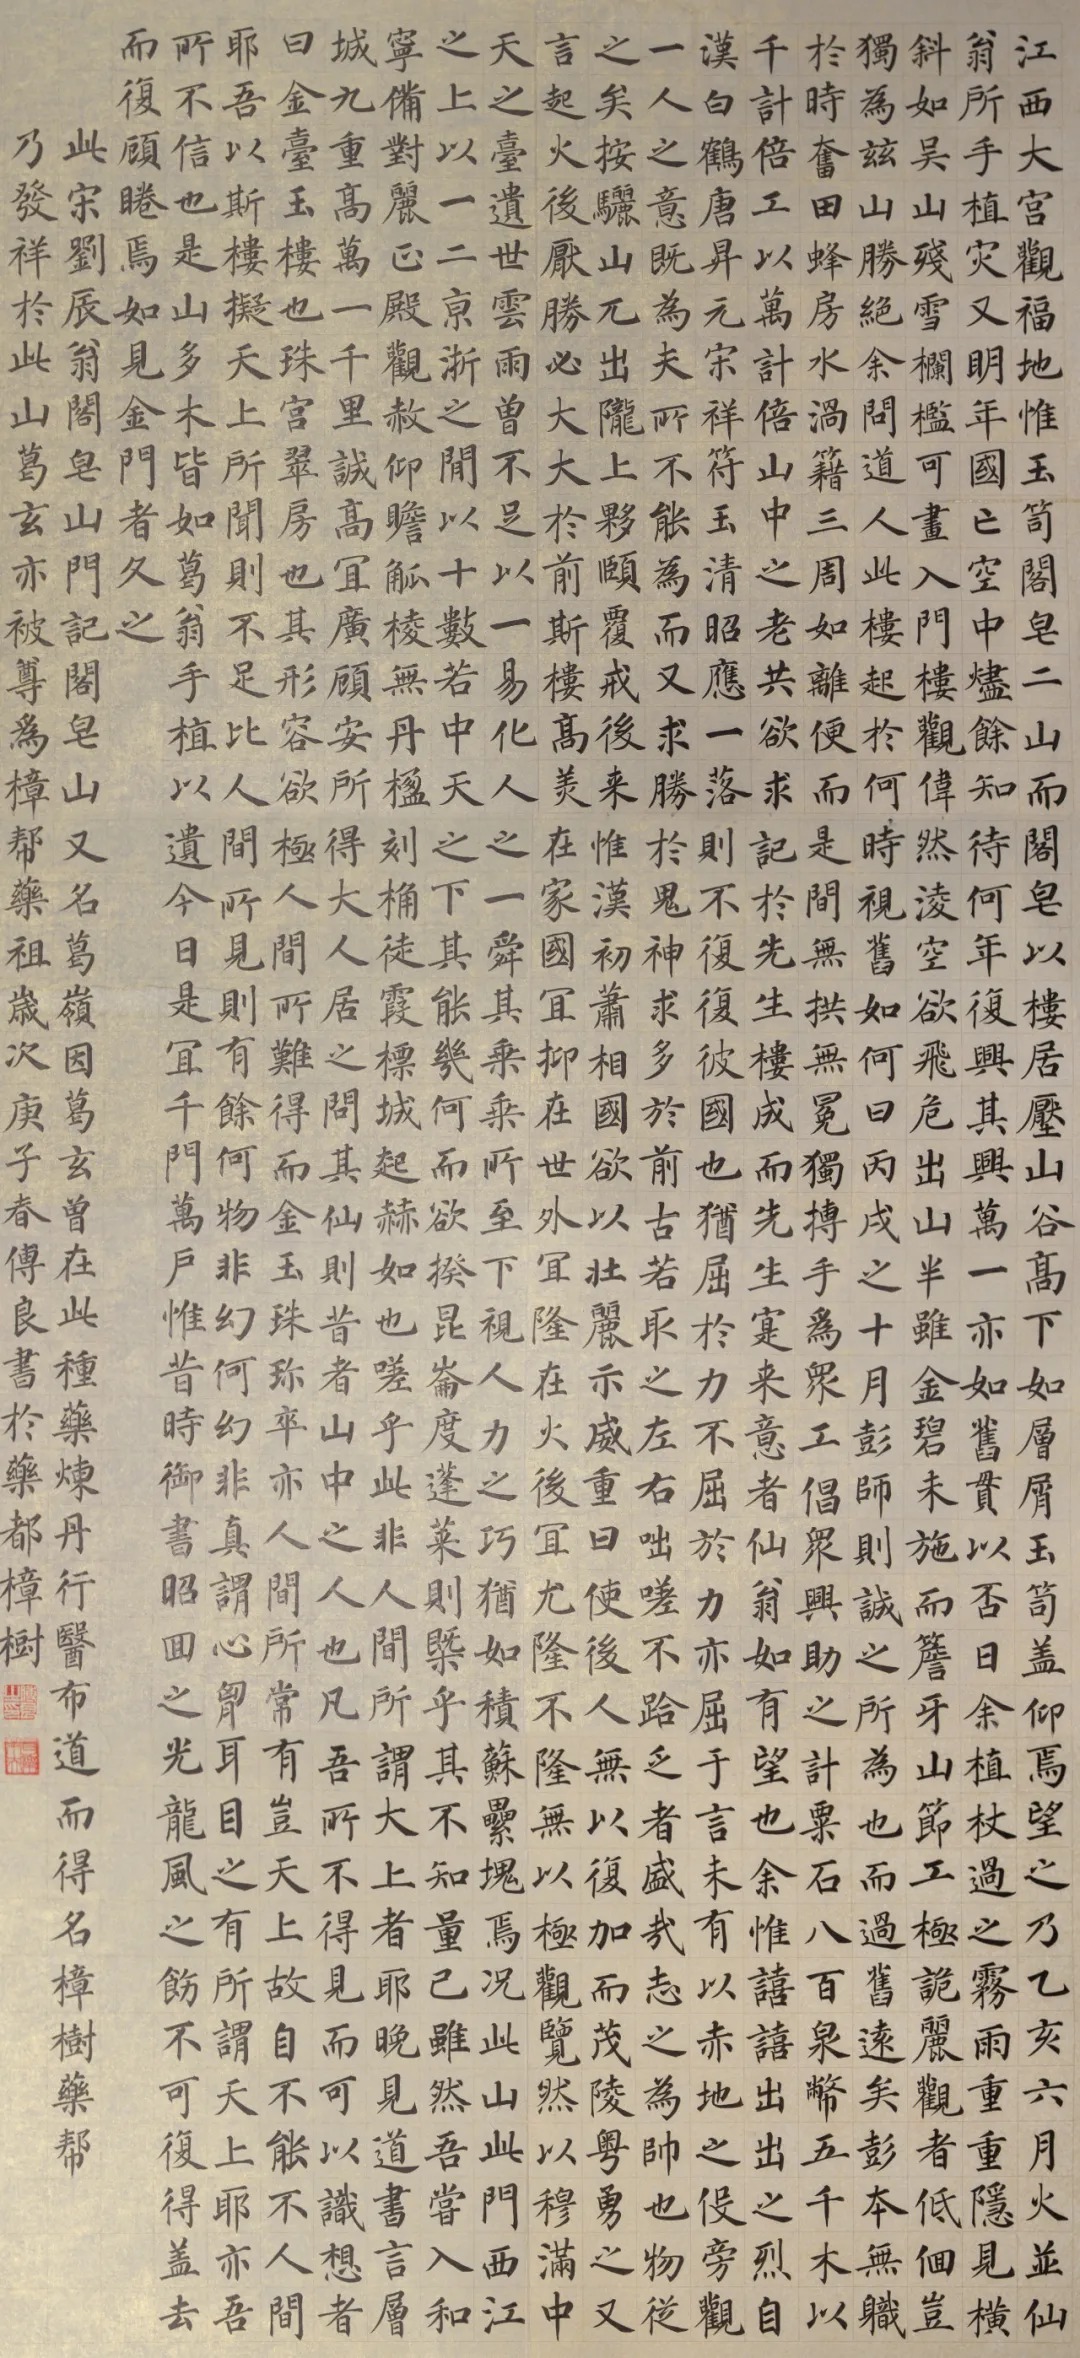 江西大宮觀福地惟玉笥閣皂二山而閣皂以樓居壓山谷高下如層屑玉笥盖仰焉望之乃乙亥六月火並仙
翁所手植灾又明年國亡空中燼餘知待何年復興其興萬一亦如舊貫以否日余植杖過之霧雨重重隱見橫
斜如吴山殘雪欄檻可畫入門樓觀偉然淩空欲飛危出山半雖金碧未施而簷牙山節工極詭麗觀者低佪豈
獨為兹山勝絶余問道人此樓起於何時視舊如何曰丙戌之十月彭師則誠之所為也而過舊遠矣彭本無職
於時奮田蜂房水渦籍三周如離便而是間無拱無冕獨摶手為衆工倡衆興助之計粟石八百泉幣五千木以
千計倍工以萬計倍山中之老共欲求記於先生樓成而先生寔来意者仙翁如有望也余惟譆譆出出之烈自
漢白鶴唐昇元宋祥符玉清昭應一落則不復復彼國也猶屈於力不屈於力亦屈于言未有以赤地之役旁觀
一人之意既為夫所不能為而又求勝於鬼神求多於前古若取之左右咄嗟不跲乏者盛哉志之為帥也物従
之矣按驪山兀出隴上夥頤覆戒後来惟漢初蕭相國欲以壯麗示威重曰使後人無以復加而茂陵粤勇之又
言起火後厭勝必大大於前斯樓高美在家國宜抑在世外宜隆在火後宜尤隆不隆無以極觀覽然以穆滿中
天之臺遺世雲雨曾不足以一易化人之一舜其乗乗所至下視人力之巧猶如積蘇纍塊焉况此山此門西江
之上以一二京浙之間以十數若中天之下其能幾何而欲揆昆崙度蓬萊則槩乎其不知量已雖然吾嘗入和
寧備對麗正殿觀赦仰瞻觚棱無丹楹刻桷徒霞標城起赫如也嗟乎此非人間所謂大上者耶晩見道書言層
城九重高萬一千里誠高宜廣顧安所得大人居之問其仙則昔者山中之人也凡吾所不得見而可以識想者
曰金臺玉樓也珠宮翠房也其形容欲極人間所難得而金玉珠珎卒亦人間所常有豈天上故自不能不人間
耶吾以斯樓擬天上所聞則不足比人間所見則有餘何物非幻何幻非真謂心胷耳目之有所謂天上耶亦吾
所不信也是山多木皆如葛翁手植以遺今日是宜千門萬戶惟昔時御書昭回之光龍風之飭不可復得盖去
而復顧睠焉如見金門者久之
此宋劉辰翁閣皂山門記閣皂山又名葛嶺因葛玄曾在此種藥煉丹行醫布道而得名樟樹藥帮
乃發祥於此山葛玄亦被尊為樟帮藥祖歲次庚子春傅良書於藥都樟樹